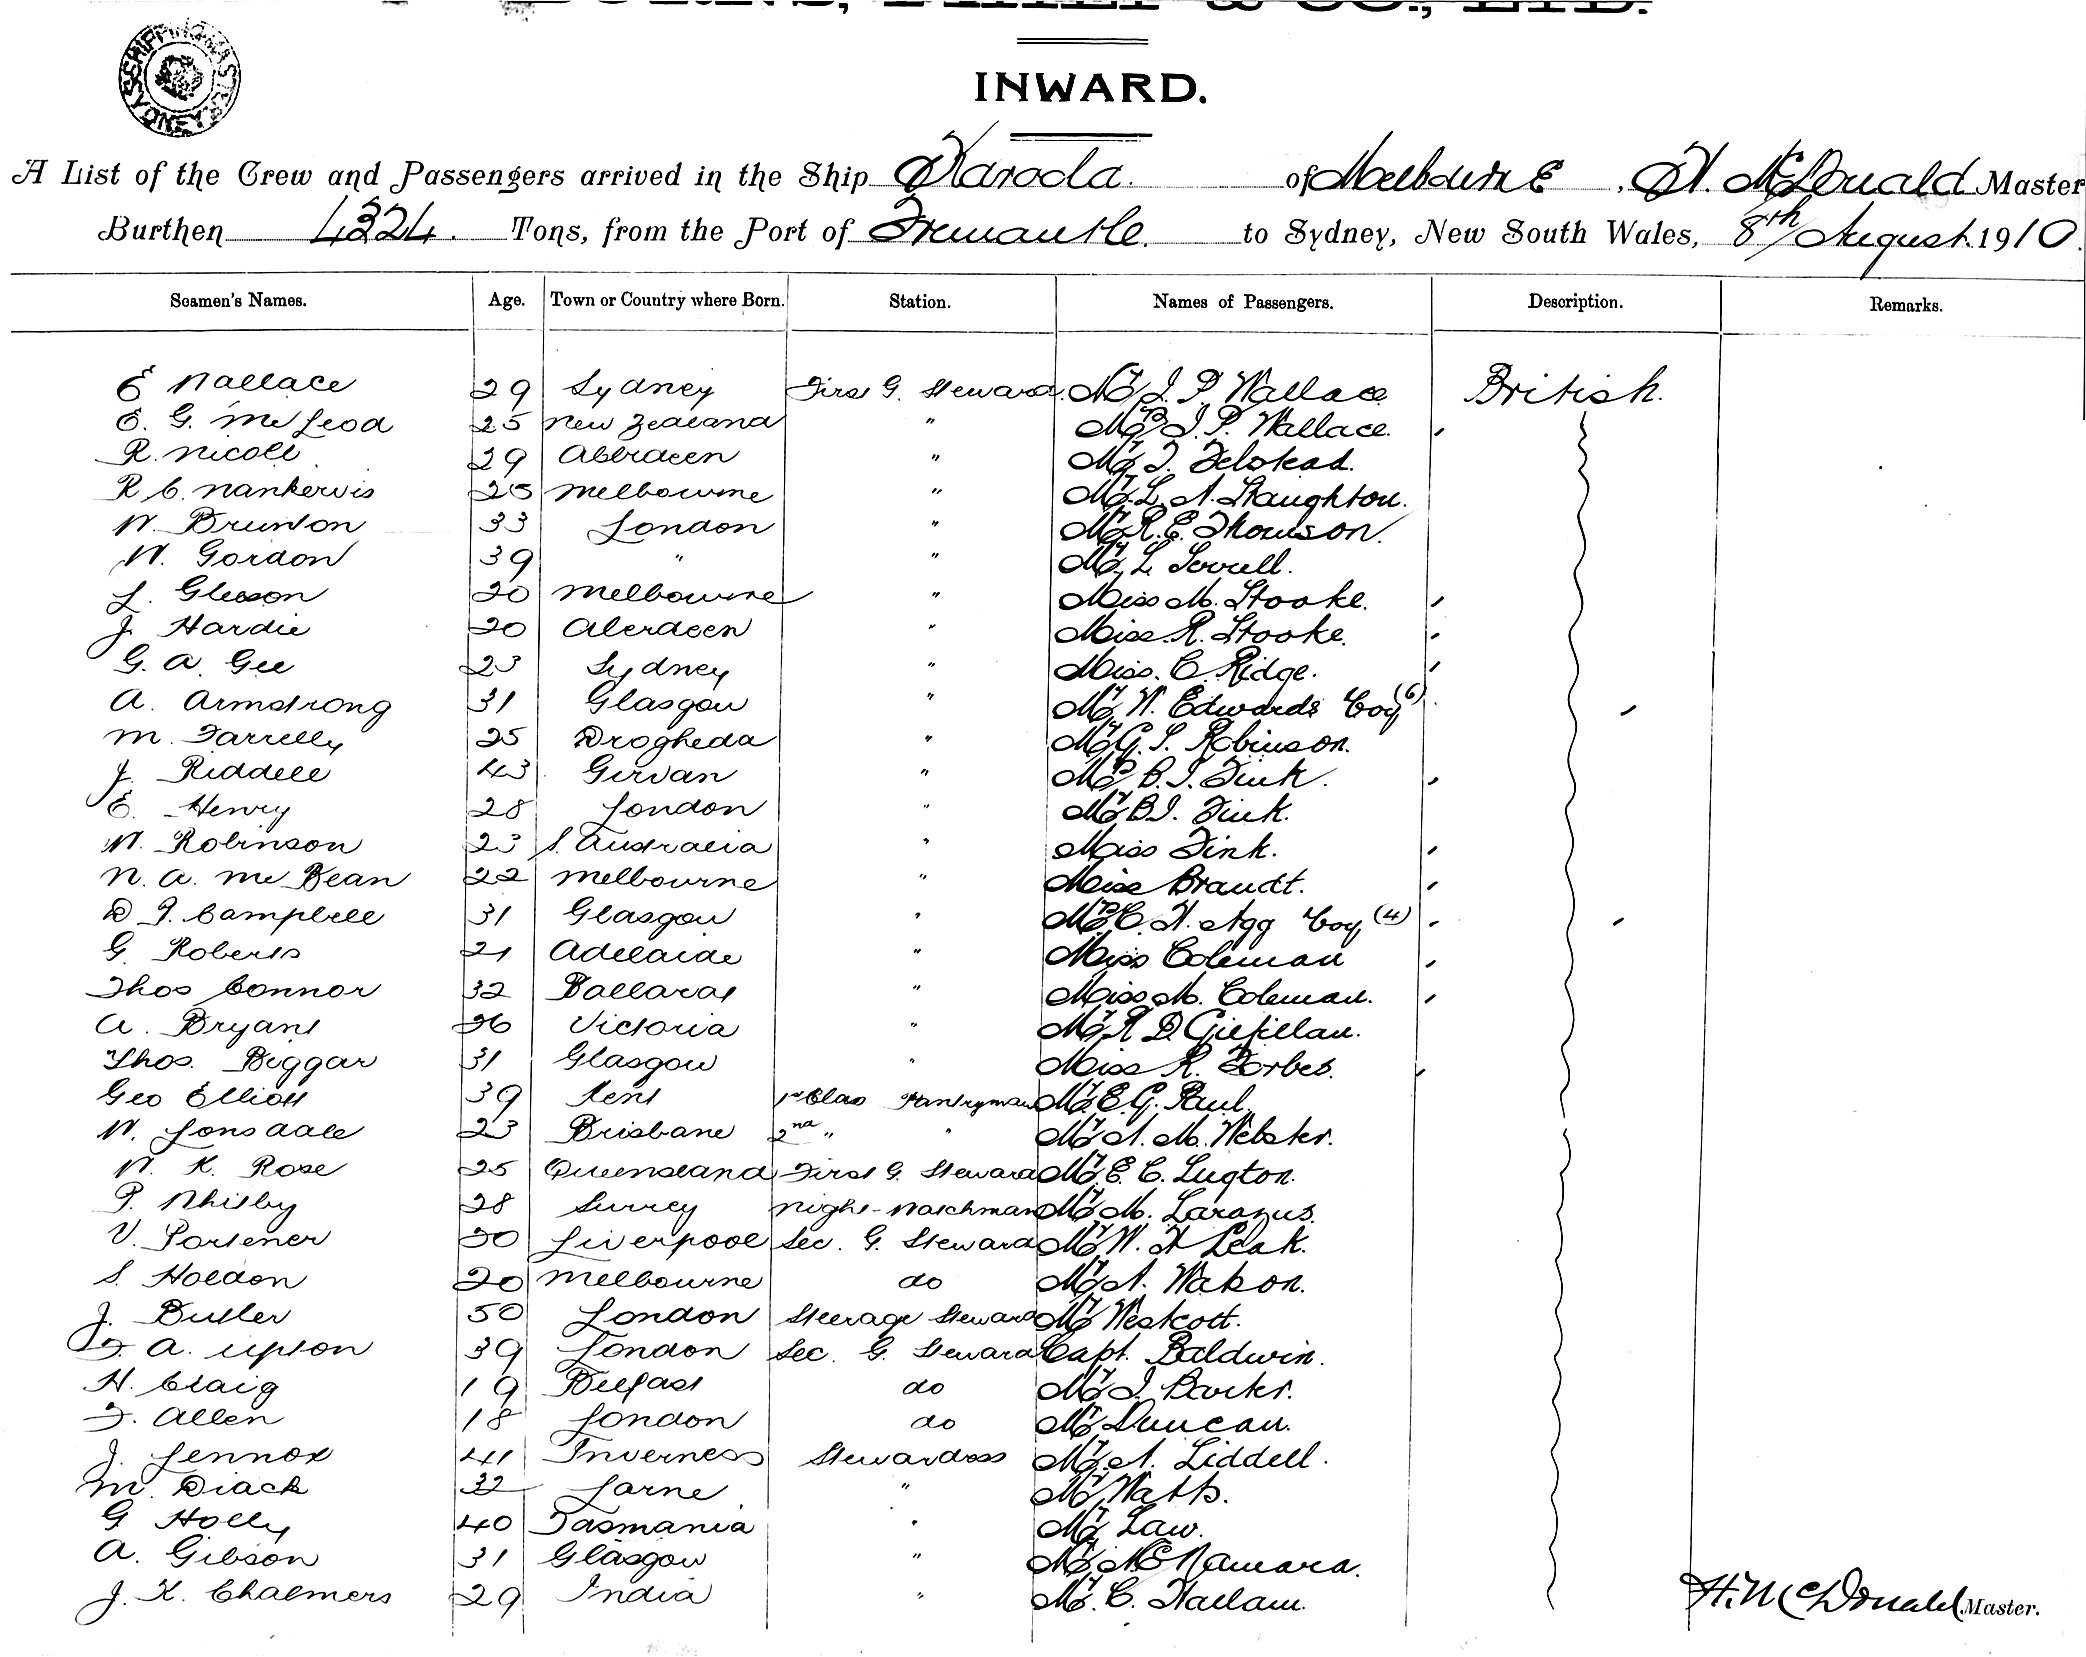 BURNS, PHILP & CO., LTD.
SHIPPING MASTER SYDNEY
INWARD.
A List of the Crew and Passengers arrived in the Ship Karoola. of Melbourne, H. McDonald Master
Burthen 4324. Tons, from the Port of Fremantle. to Sydney, New South Wales, 8th August. 1910.
Seamen's Names. Age. Town or Country where Born. Station. Names of Passengers. Description. Remarks.
E Wallace 29 Sydney First G. Steward. Mr J. P. Wallace British.
E. G. McLeod 25 New Zealand " Mrs J. P. Wallace.
R. Nicoll 29 Aberdeen " Mr J. Felstead.
R C. Nankervis 25 Melbourne " Mr L. A. Staughton.
W. Brunton 33 London " Mr R. E. Thomson.
W. Gordon 39 " " Mr L.
L. Gleeson 20 Melbourne " Miss M. Stooke.
J. Hardie 20 Aberdeen " Miss. R. Stooke.
G. A. Gee 23 Sydney " Miss. C. Ridge.
A. Armstrong 31 Glasgow " Mr W. Edwards Coy (6)
M. Farrelly 25 Drogheda " Mr G. S. Robinson.
J. Riddell 43 Girvan " Mrs B. J. Fink.
E. Henry 28 London " Mr B J. Fink.
W. Robinson 23 S. Australia " Miss Fink.
N. A. McBean 22 Melbourne " Miss Brandt.
D J. Campbell 31 Glasgow " Mrs C. H. Agg Coy (4)
G. Roberts 21 Adelaide " Miss Coleman
Thos Connor 32 Ballarat " Miss M. Coleman.
A. Bryant 26 Victoria " Mr R D Gilfillan.
Thos. Biggar 31 Glasgow " Miss R. Forbes.
Geo Elliott 39 Kent 1st Class Pantryman Mr E. G. Paul.
W. Lonsdale 23 Brisbane 2nd " " Mr A. M. Webster.
W. K. Rose 25 Queensland First G. Steward Mr E. C. Lugton.
P. Whitby 28 Surrey Night-Watchman Mr M. Larazus.
V. Portener 30 Liverpool Sec. G. Steward Mr W. H Leak.
S. Holdon 20 Melbourne do Mr A. Watson.
J. Butler 50 London Steerage Steward Mr Westcott.
F. A. Upton 39 London Sec. G. Steward Capt. Baldwin.
H. Craig 19 Belfast do Mr J.
F. Allen 18 London do Mr Duncan.
J. Lennox 41 Inverness Stewardess Mr A. Liddell.
M. Diack 32 Larne " Mr Watts.
G Holly 40 Tasmania " Mr Law.
A. Gibson 31 Glasgow " Mr McNamara.
J. K. Chalmers 29 India " Mr. C. Hallam.
H. McDonald Master.